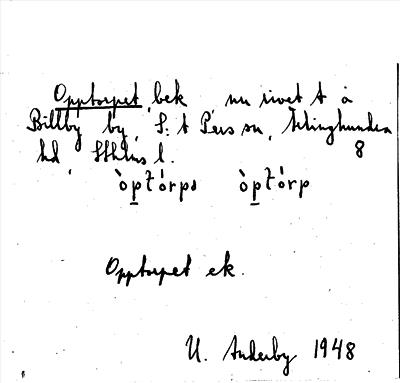 Opptorpet, bek. nu rivet t å
Billby by, S:t Pers sn, Seminghundra
hd, Sthlms l. 8
òpt̀órpə òpt̀órp
Opptorpet ek.
U. Anderby 1948